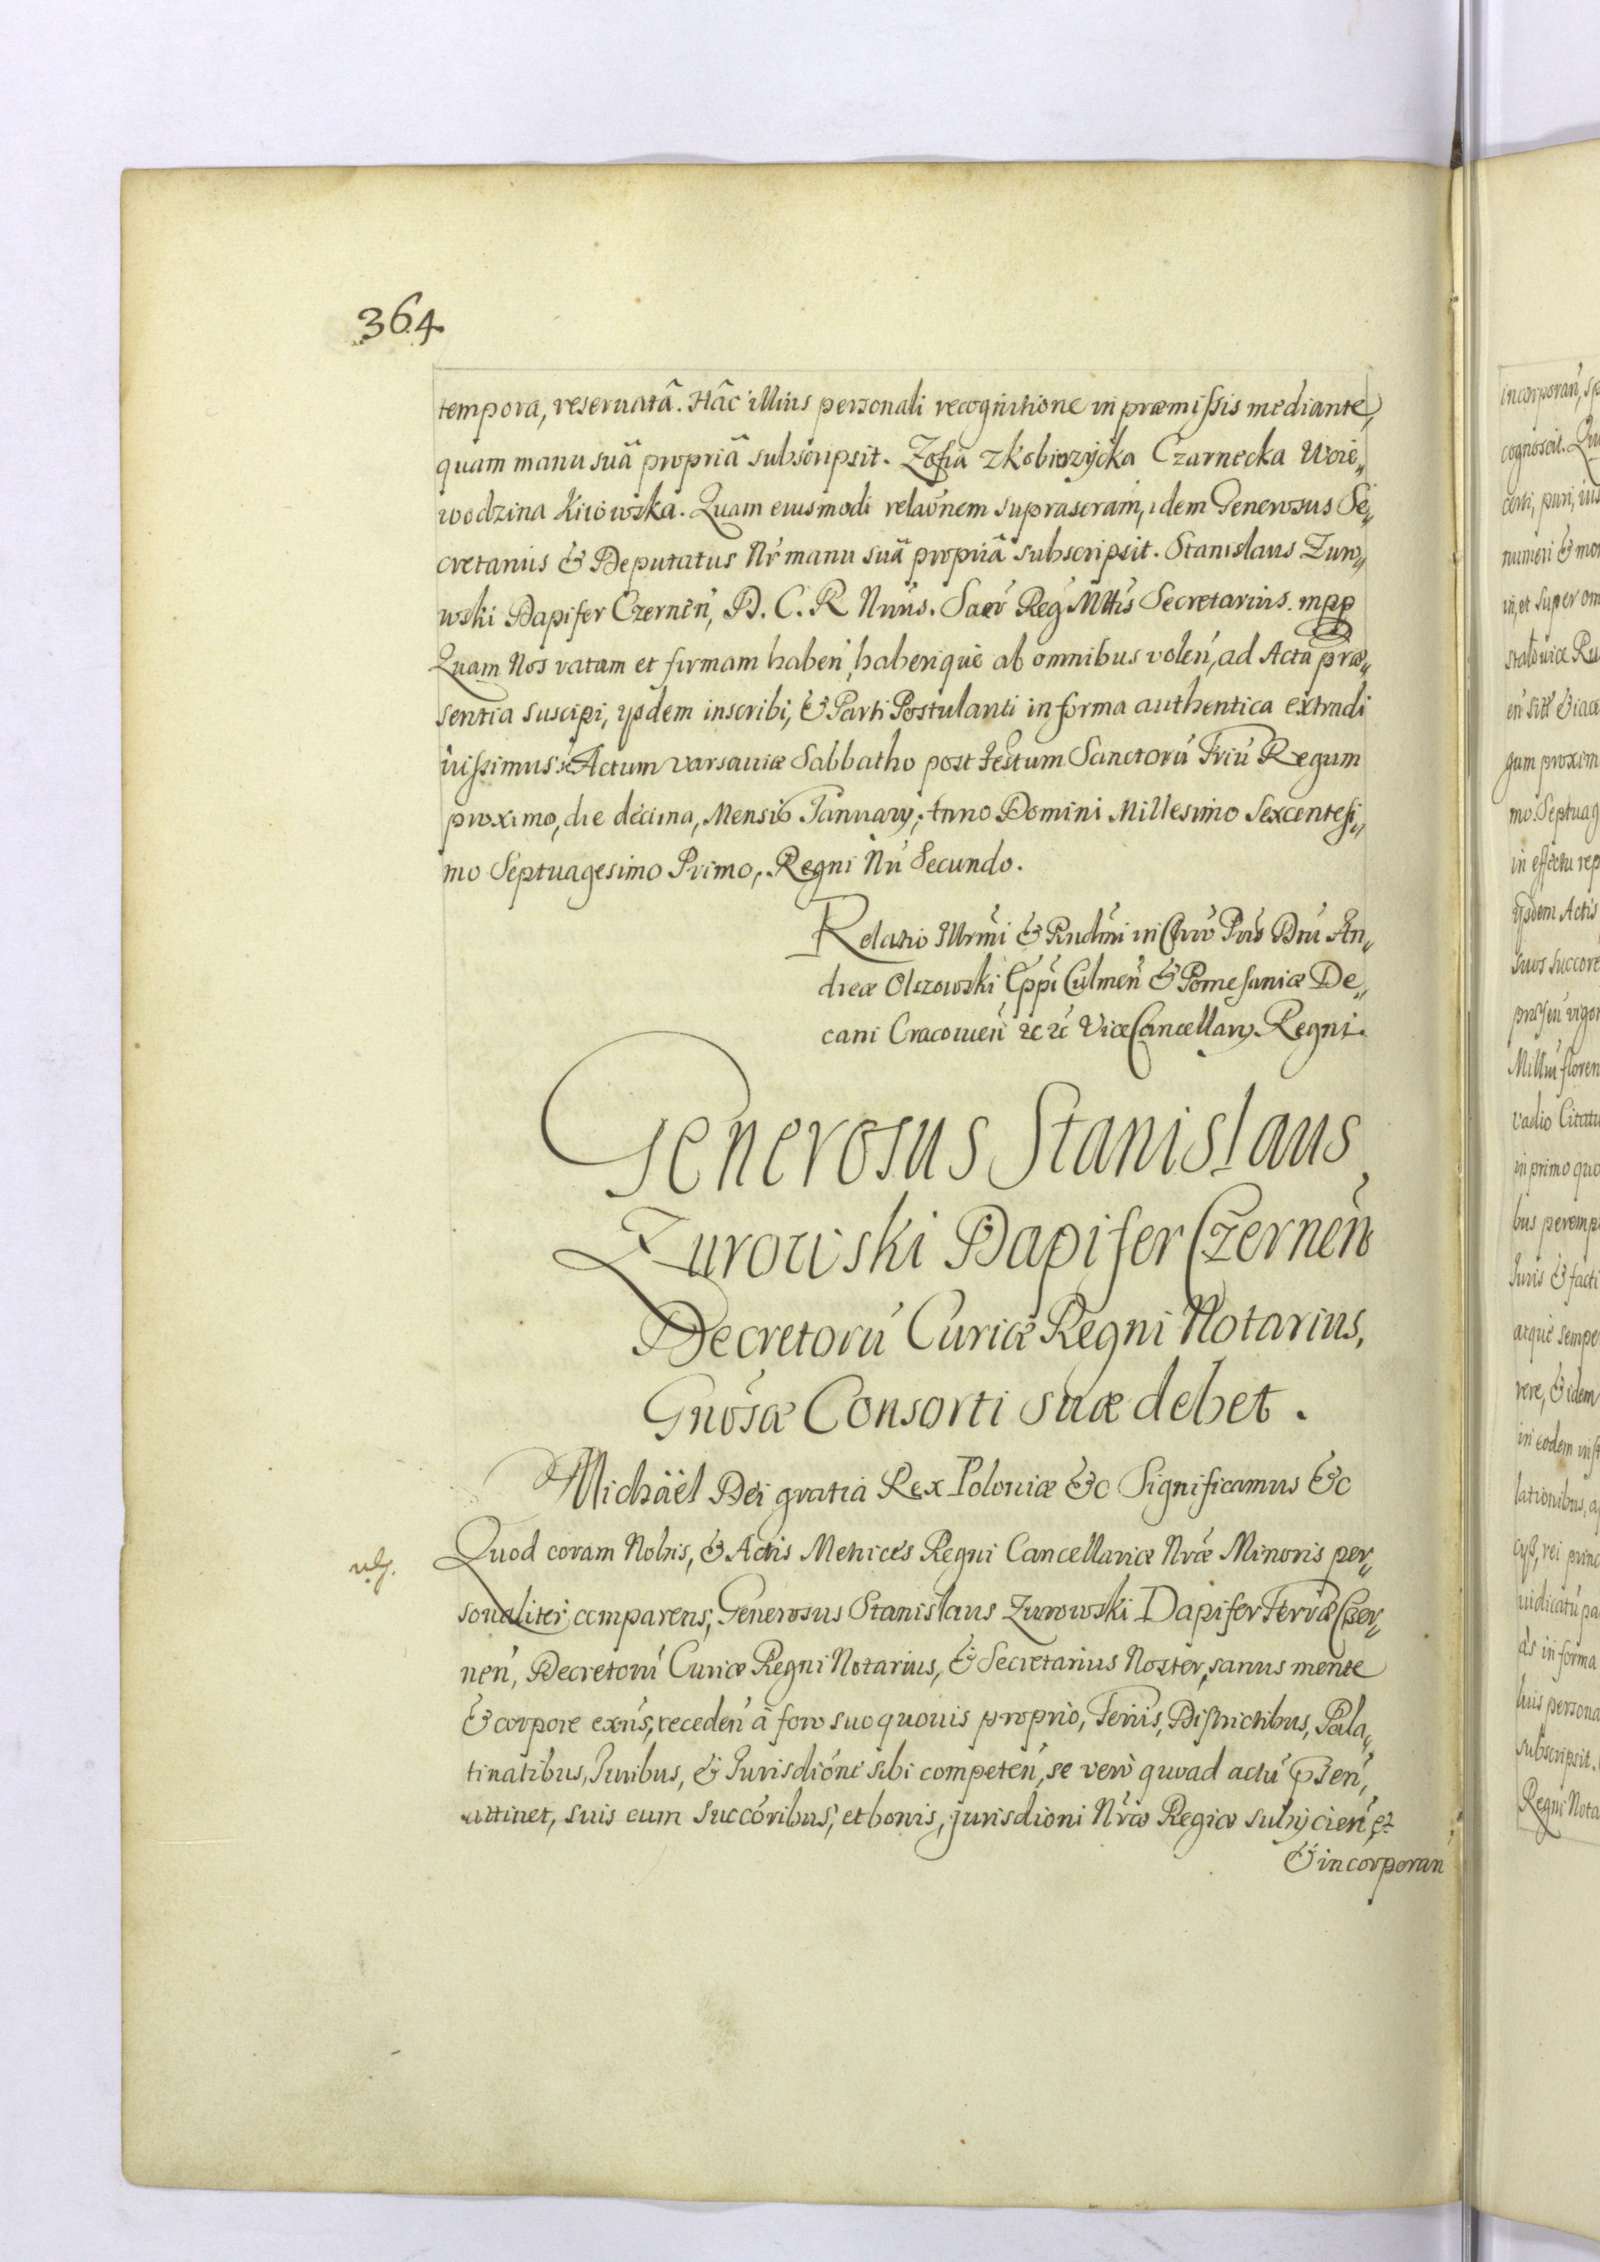 364.
tempora, reseruatâ. Hâc illius personali recognitione in præmissis mediante,
quam manu suâ propriâ subscripsit. Zofia zkobierzycka Czarnecka Woie„
wodzina Kiiowska. Quam eiusmodi relaõnem suprascram, idem Generosus Se„
cretarius & Deputatus Nr manu suâ propriâ subscripsit. Stanislaus Zuro„
wski Dapifer Czernen, D. C. R Nrius. Sacr Reg Mttis Secretarius. mpp
Quam Nos ratam et firmam haben, haberique ab omnibus volen, ad Acta præ„
sentia suscipi, ijsdem inscribi, & Parti Postulanti in forma authentica extradi
iussimus. Actum Varsauiæ Sabbatho post Festum Sanctorũ Triũ Regum
proximo, die decima, Mensis Januarij, Anno Domini Millesimo Sexcentesi„
mo Septuagesimo Primo, Regni Nri Secundo.
Relatio Illrmi & Rndmi in Chro Pris Dni An„
dreæ Olszowski Eppi Culmen & Pomesaniæ De„
cani Cracouien &c &c ViceCancellarij Regni.
Generosus Stanislaus
Zurowski Dapifer Czernen
Decretorũ Curiæ Regni Notarius,
Gnosæ Consorti suæ debet.
Michaël Dei gratia Rex Poloniæ &c Significamus &c
Quod coram Nobis, & Actis Metrices Regni Cancellariæ Nræ Minoris per„
sonaliter comparens, Generosus Stanislaus Zurowski Dapifer Terræ Czer„
nen, Decretorũ Curiæ Regni Notarius, & Secretarius Noster, sanus mente
& corpore exns, receden à foro suo quouis proprio, Terris, Districtibus, Pala„
tinatibus, Juribus, & Jurisdione sibi competen, se verò quoad actũ psen,
attinet, suis cum succoribus, et bonis, jurisdioni Nræ Regiæ subijcien, et
& incorporan
incorporan, sp
cognoscit. Qu
certi, puri, ius
numeri & mon
in, et super om
en sit & iace
gum proxim
mo Septuag
in effectu rep
ijsdem Actis
suos succore
Millm floren
vadio Citatu
in primo quo
bus peremp
Juris & facti
atque sempe
rere, & idem
in eodem inst
lationibus, a
rei princ
iudicatũ pa
in forma
persona
subscripsit.
Regni Nota